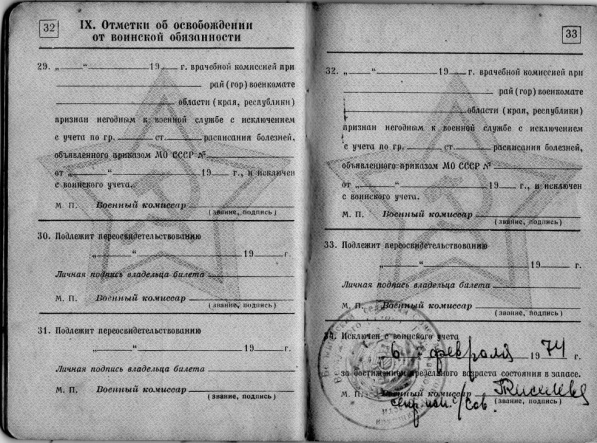 32
IX. Отметки об освобождении
от воинской обязанности
29. „ “ 19 г. врачебной комиссией при
рай (гор) военкомате
области (края, республики)
признан негодным к военной службе с исключением
с учета по гр. ст. расписания болезней,
объявленного приказом МО СССР №
от „ “ 19 г., и исключен
с воинского учета.
М. П. Военный комиссар
(звание, подпись)
30. Подлежит переосвидетельствованию
„ “ 19 г.
Личная подпись владельца билета
М. П. Военный комиссар
(звание, подпись)
31. Подлежит переосвидетельствованию
„ “ 19 г.
Личная подпись владельца билета
М. П. Военный комиссар
(звание, подпись)
33
32. „ “ 19 г. врачебной комиссией при
рай (гор) военкомате
области (края, республики)
признан негодным к военной службе с исключением
с учета по гр. ст. расписания болезней,
объявленного приказом МО СССР №
от „ “ 19 г., и исключен
с воинского учета.
М. П. Военный комиссар
(звание, подпись)
33. Подлежит переосвидетельствованию
„ “ 19 г.
Личная подпись владельца билета
М. П. Военный комиссар
(звание, подпись)
34. Исключен с воинского учета
6 февраля 1974 г.
за достижением предельного возраста состояния в запасе.
М. П. Военный комиссар
(звание, подпись)